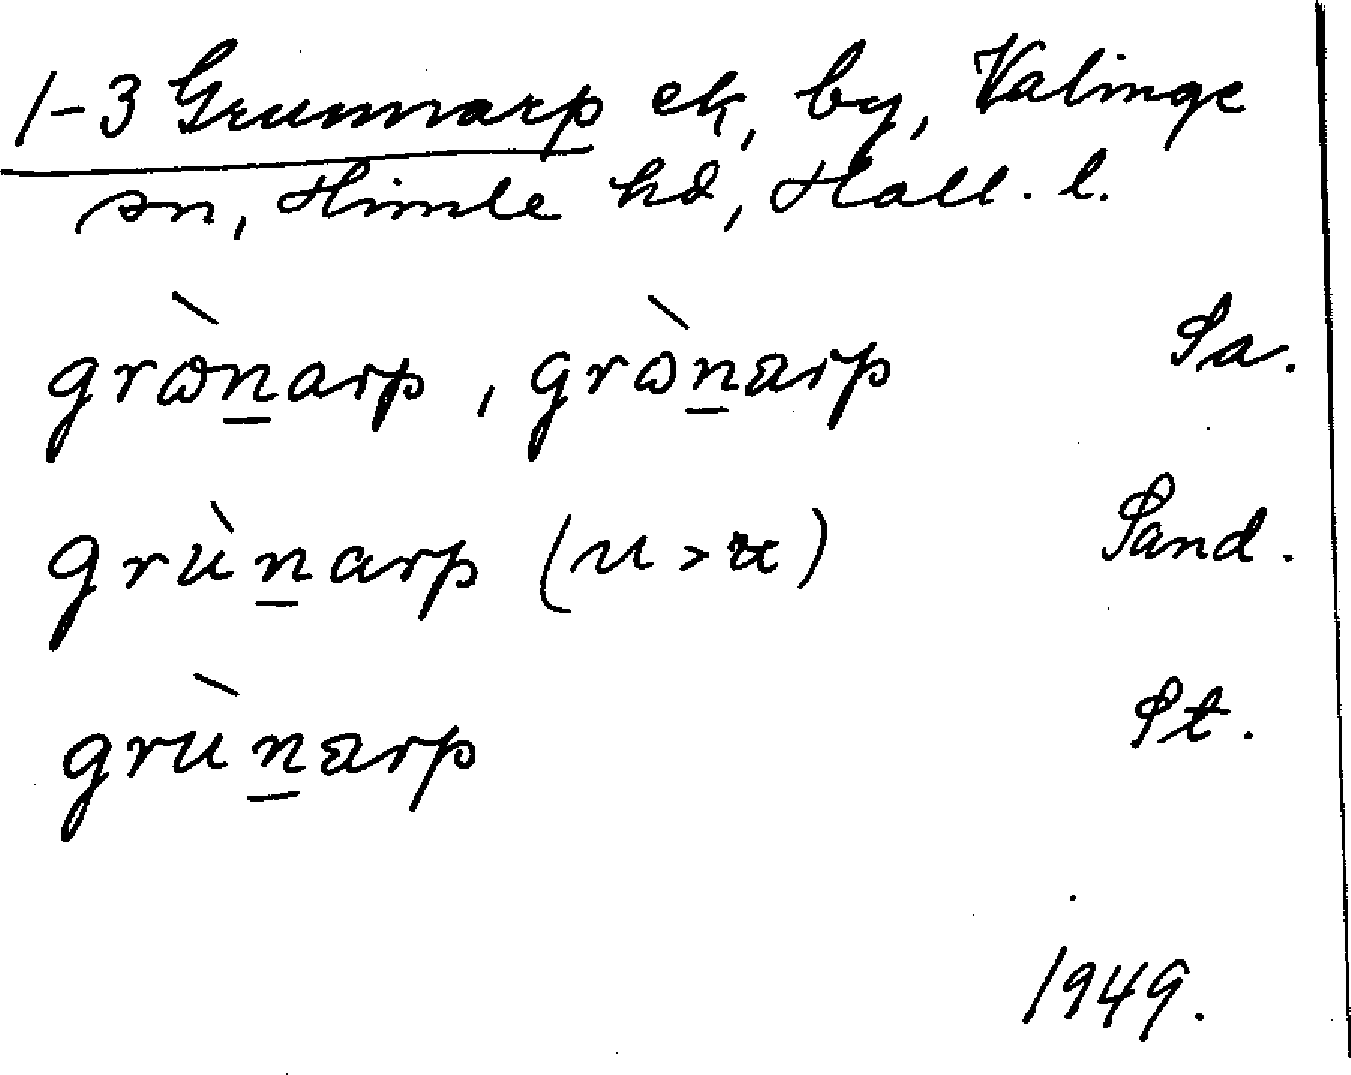 1-3 Grunnarp ek, by, Valinge
sn, Himle hd, Hall. l.
grɷ̀n̲arp, grɷ̀n̲ɑrp Sa.
grùn̲arp (u > ʉ) Sand.
grùn̲ɑrp St.
1949.